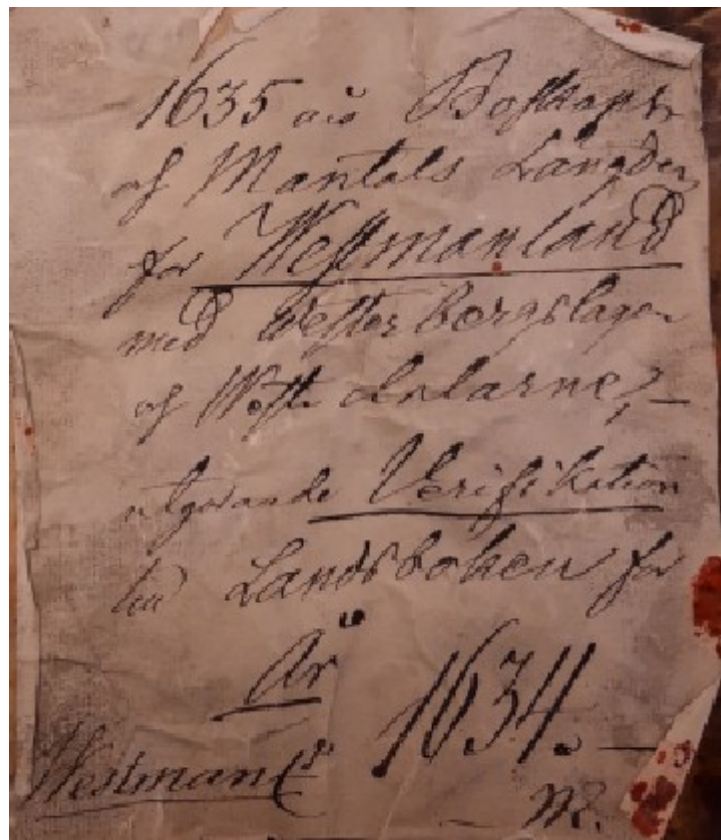 1635 års Boskaps
och Mantals Längder
för Westmanland
med Westerbergslagen
och West. Dalarne,—
utgörande Verifikation
till Landsboken för
År 1634.—
Westmanl.